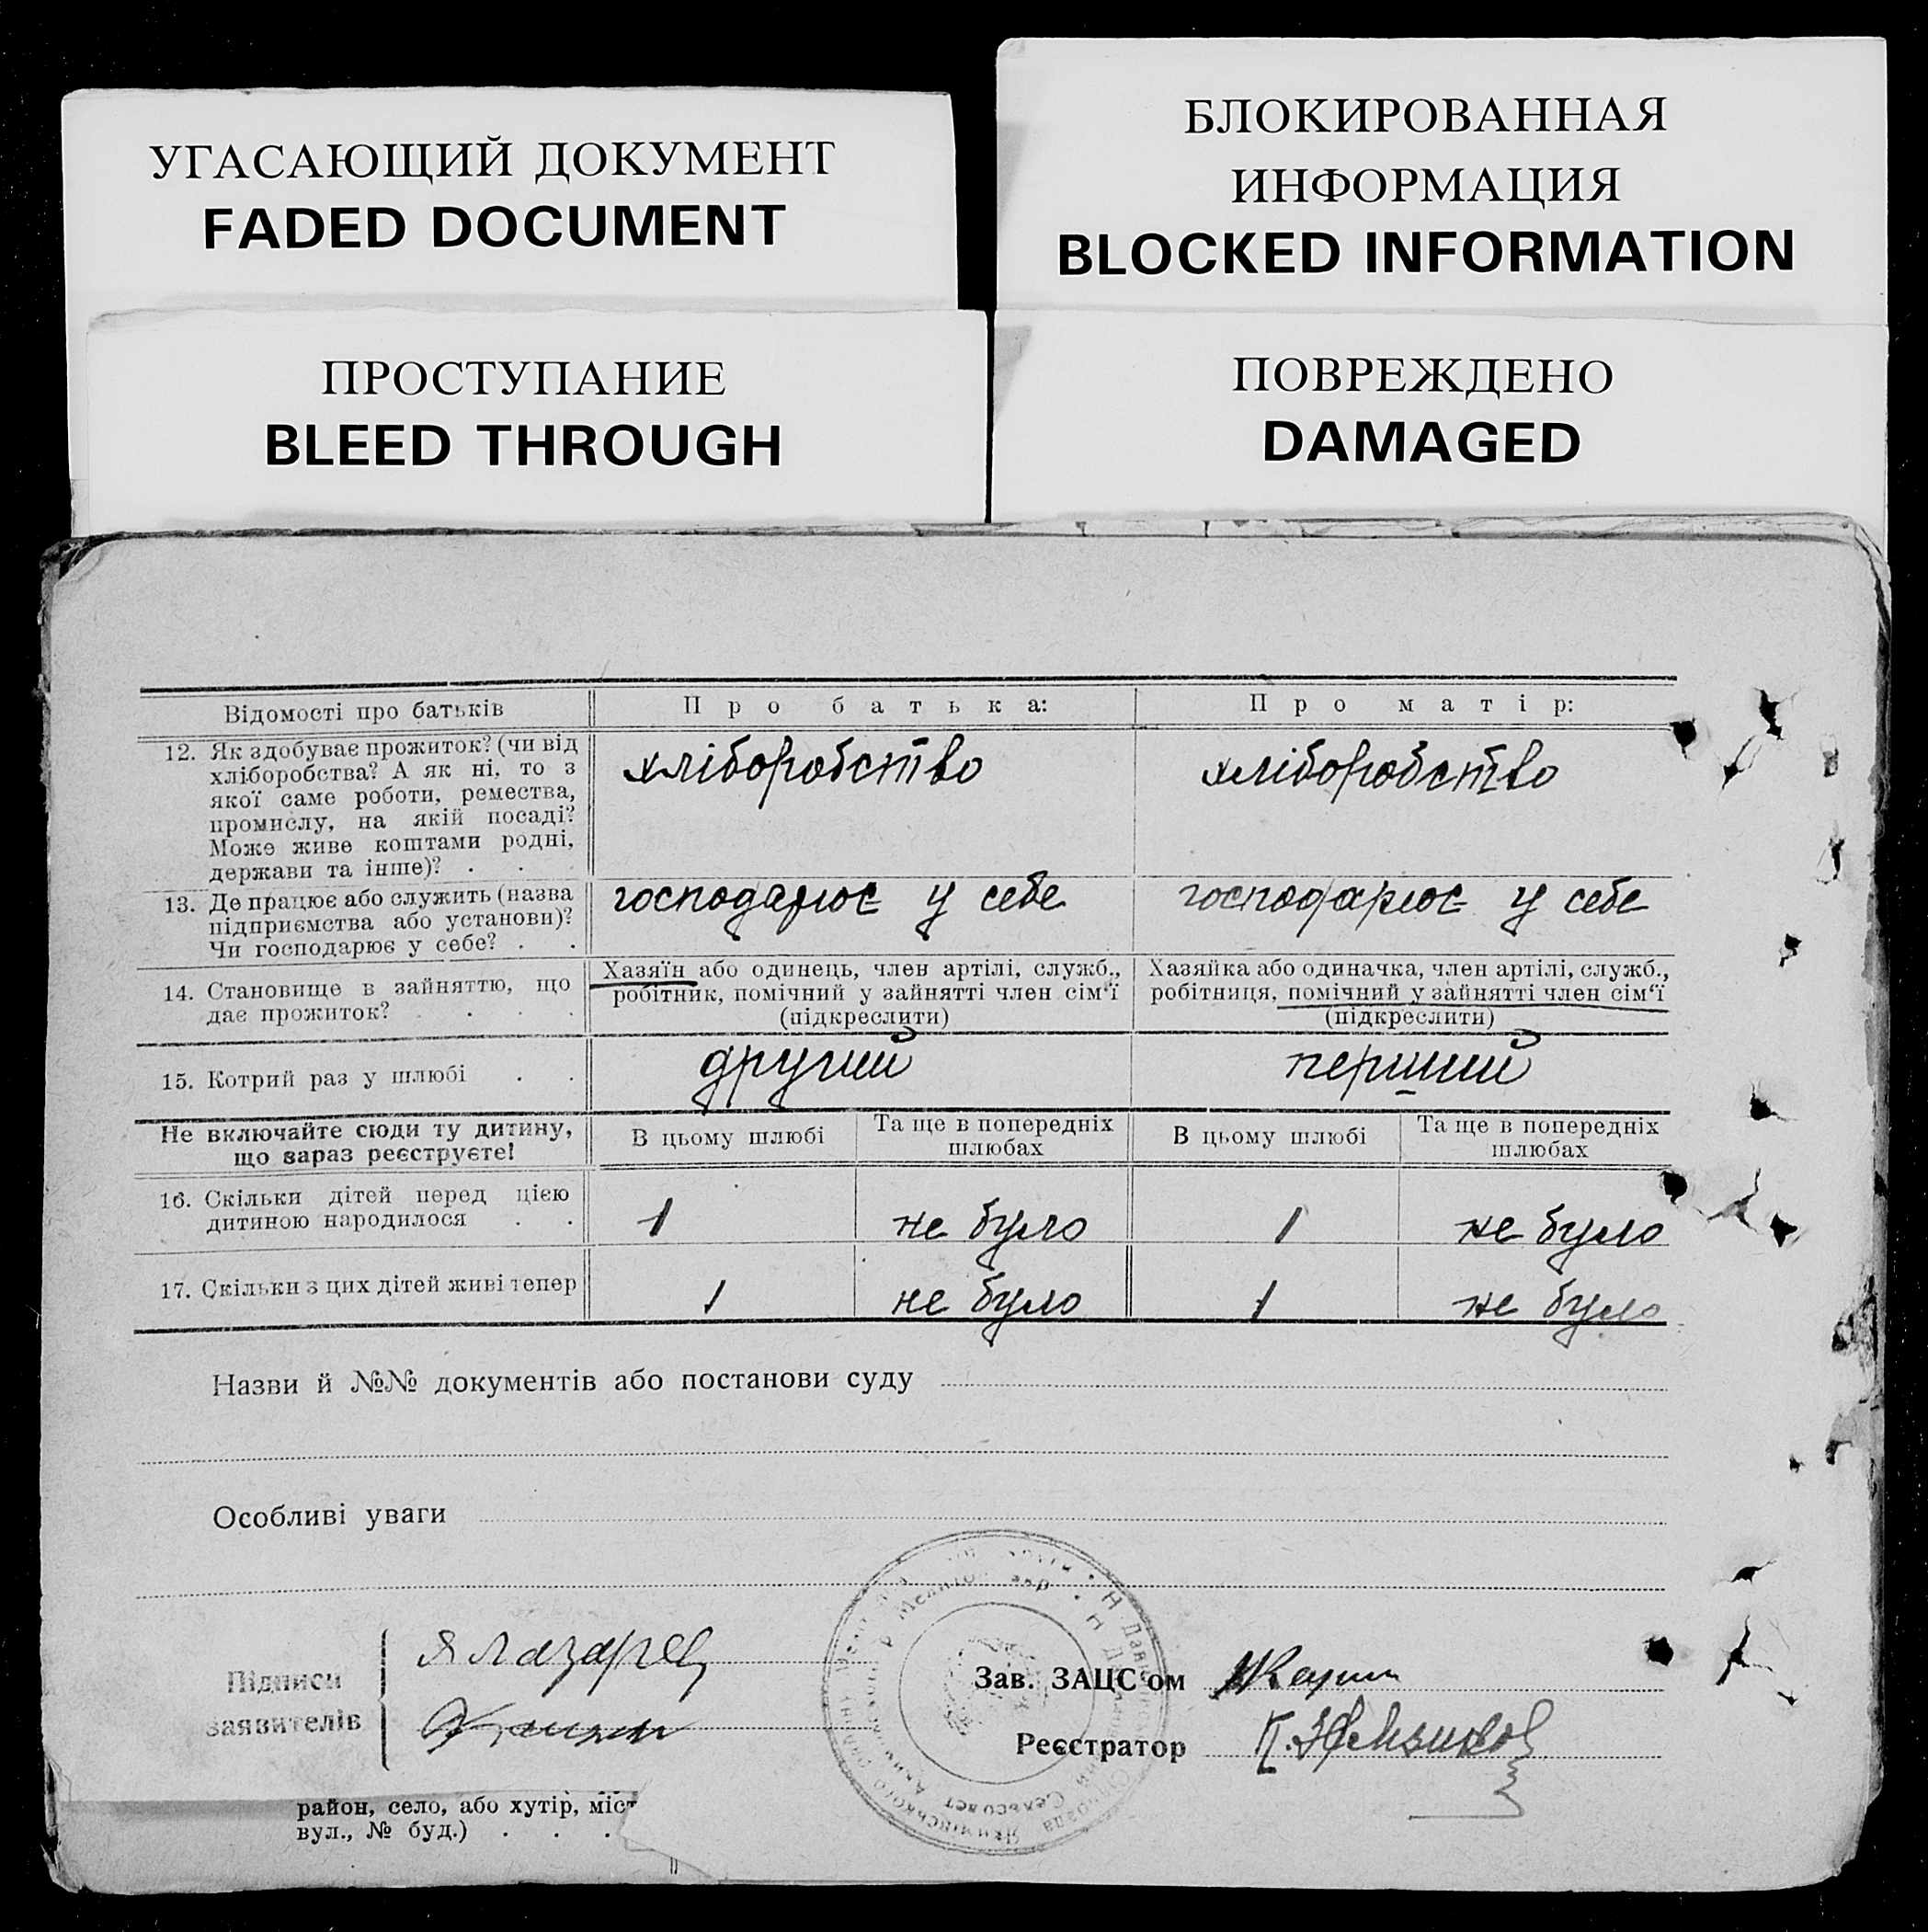 УГАСАЮЩИЙ ДОКУМЕНТ
FADED DOCUMENT
БЛОКИРОВАННАЯ
ИНФОРМАЦИЯ
BLOCKED INFORMATION
ПРОСТУПАНИЕ
BLEED THROUGH
ПОВРЕЖДЕНО
DAMAGED
Відомості про батьків
Про батька:
Про матір:
12. Як здобуває прожиток? (чи від
хліборобства? А як ні, то з
якої саме роботи, ремества,
промислу, на якій посаді?
Може живе коштами родні,
держави та інше)? .
хліборобство
хліборобство
13. Де працює або служить (назва
підприємства або установи)?
Чи господарює у себе? . .
господарює у себе
господарює у себе
14. Становище в зайняттю, що
дає прожиток? . . . .
Хазяїн або одинець, член артілі, служб.,
робітник, помічний у зайнятті член сім‘ї
(підкреслити)
Хазяйка або одиначка, член артілі, служб.,
робітниця, помічний у зайнятті член сім‘ї
(підкреслити)
15. Котрий раз у шлюбі . .
другий
перший
Не включайте сюди ту дитину,
що зараз реєструєте!
В цьому шлюбі
Та ще в попередніх
шлюбах
В цьому шлюбі
Та ще в попередніх
шлюбах
16. Скільки дітей перед цією
дитиною народилося . .
1
не було
1
не було
17. Скільки з цих дітей живі тепер
1
не було
1
не було
Назви й №№ документів або постанови суду
Особливі уваги
Підписи
заявителів
Зав. ЗАЦС'ом
Реєстратор
район, село, або хутір, міст
вул., № буд.) . . .